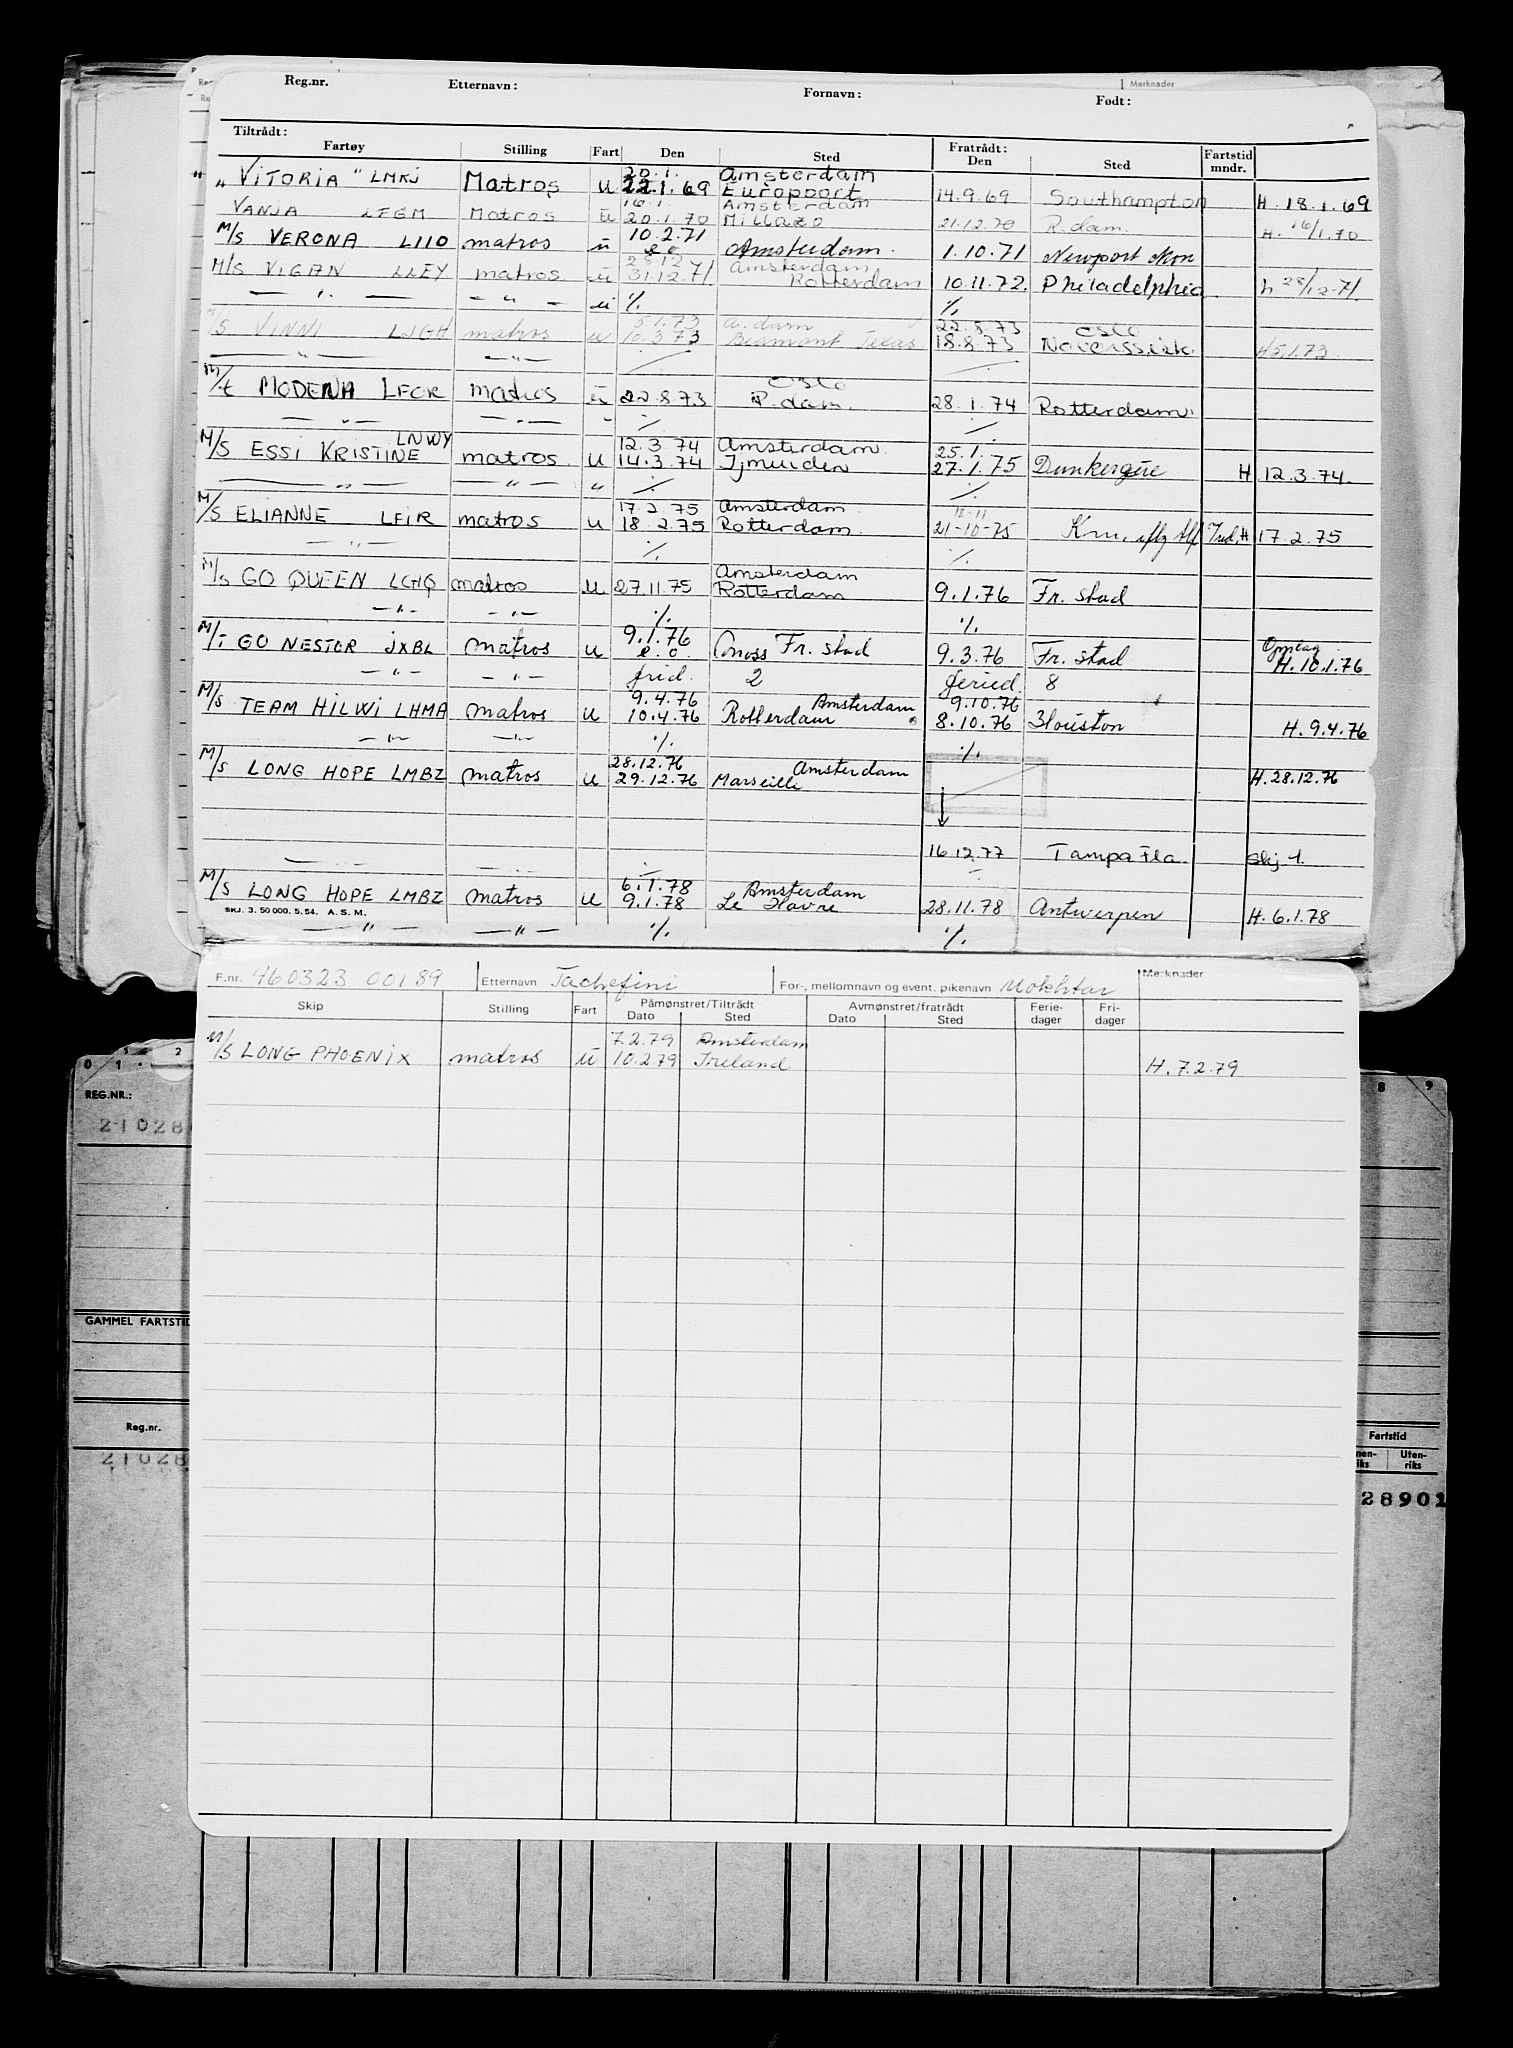 Merknader
Reg.nr. Etternavn: Fornavn: Født:
Tiltrådt: Fratrådt:
Fartøy Stilling Fart Den Sted Den Sted Fartstid mndr.
20.1. Amsterdam
" VITORIA " LMKJ Matros u 22.1.69 Europoort 14.9.69 Southampton H. 18.1.69
16.1. Amsterdam
VANJA LEGM Matros u 20.1.70 Millazo 21.12.70 R.dam. H. 16/1.70
M/S VERONA LIIO matros u 10.2.71 Amsterdam. 1.10.71 Newport Mon
e.o
28.12 Amsterdam
M/S VIGAN LLEY matros u 31.12.71. Rotterdam 10.11.72. Philadelphia. h 28/12-71.
— " — — " — u ·/. ·/.
5.1.73 a.dam 22.8.73 Oslo
M/S VINNI LJGH matros u 10.3.73 Beamont Texas. 18.8.73 H 5.1.73
— " — — " — ·/. ·/.
Oslo
M/t MODENA LFOR matros u 22.8.73 R.dam. 28.1.74 Rotterdam.
— " — — " — " ·/. ·/.
LNWY 12.3.74 Amsterdam. 25.1.
M/S ESSI KRISTINE matros. u 14.3.74 Ijmuiden 27.1.75 Dunkerque H 12.3.74.
— " — — " — " ·/. ·/.
17.2.75 Amsterdam. 18-11
M/S ELIANNE LEIR matros u 18.2.75 Rotterdam. 21-10-75 H 17.2.75
— " — ·/. ·/.
Amsterdam
M/S GO QUEEN LCHQ matros u 27.11.75 Rotterdam 9.1.76 Fr.stad
— " — — " — ·/. ·/.
9.1.76
M/T GO NESTOR JXBL matros u e.o. Fr.stad 9.3.76 Fr.stad H. 10.1.76
— " — — " — frid. 2 feried. 8
9.4.76 Amsterdam 9.10.76
M/S TEAM HILWI LHMA matros u 10.4.76 Rotterdam 8.10.76 Houston H. 9.4.76
— " — — " — ·/. ·/.
28.12.76 Amsterdam
M/S LONG HOPE LMBZ matros u 29.12.76 Marseille H. 28.12.76
16.12.77 Tampa Fla. Skj 1.
— — ·/. ·/.
6.1.78 Amsterdam
M/S LONG HOPE LMBZ matros u 9.1.78 Le Havre 28.11.78 Antwerpen H. 6.1.78
SKJ. 3. 50 000. 5. 54. A. S. M.
— " — — " — ·/. ·/.
F.nr. 460323 00189 Etternavn Tachefini For-, mellomnavn og event. pikenavn Mokhtar Merknader
Skip Stilling Fart Påmønstret/Tiltrådt Avmønstret/fratrådt Ferie- Fri-
Dato Sted Dato Sted dager dager
7.2.79 Amsterdam
M/S LONG PHOENIX matros u 10.2.79 Ireland H. 7.2.79
0 1 2 8 9
REG.NR.:
21028
GAMMEL FARTSTID
Reg.nr. Fartstid
Uten-
riks
21028
28901